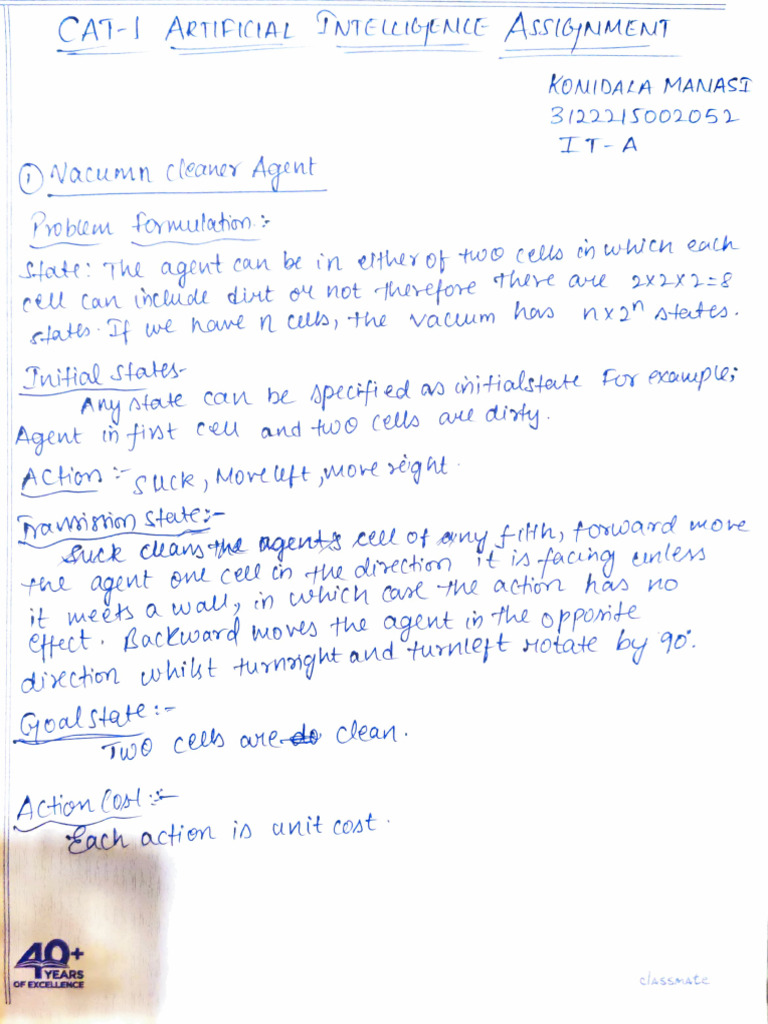 CAT-1 ARTIFICIAL INTELLIGENCE ASSIGNMENT
KONIDALA MANASI
3122215002052
IT-A
① Vacumn cleaner Agent
Problem formulation:-
State: The agent can be in either of two cells in which each
cell can include dirt or not therefore there are 2x2x2=8
states. If we have n cells, the vacuum has n x 2ⁿ states.
Initial States-
Any state can be specified as initialstate For example;
Agent in first cell and two cells are dirty.
Action:- Suck, Move left, move right.
Transistion State:-
Suck cleans the agents cell of any filth, forward move
the agent one cell in the direction it is facing unless
it meets a wall, in which case the action has no
effect. Backward moves the agent in the opposite
direction whilst turnright and turnleft rotate by 90°.
Goal state:-
Two cells are clean.
Action Cost:-
Each action is unit cost.
40+
YEARS
OF EXCELLENCE
classmate